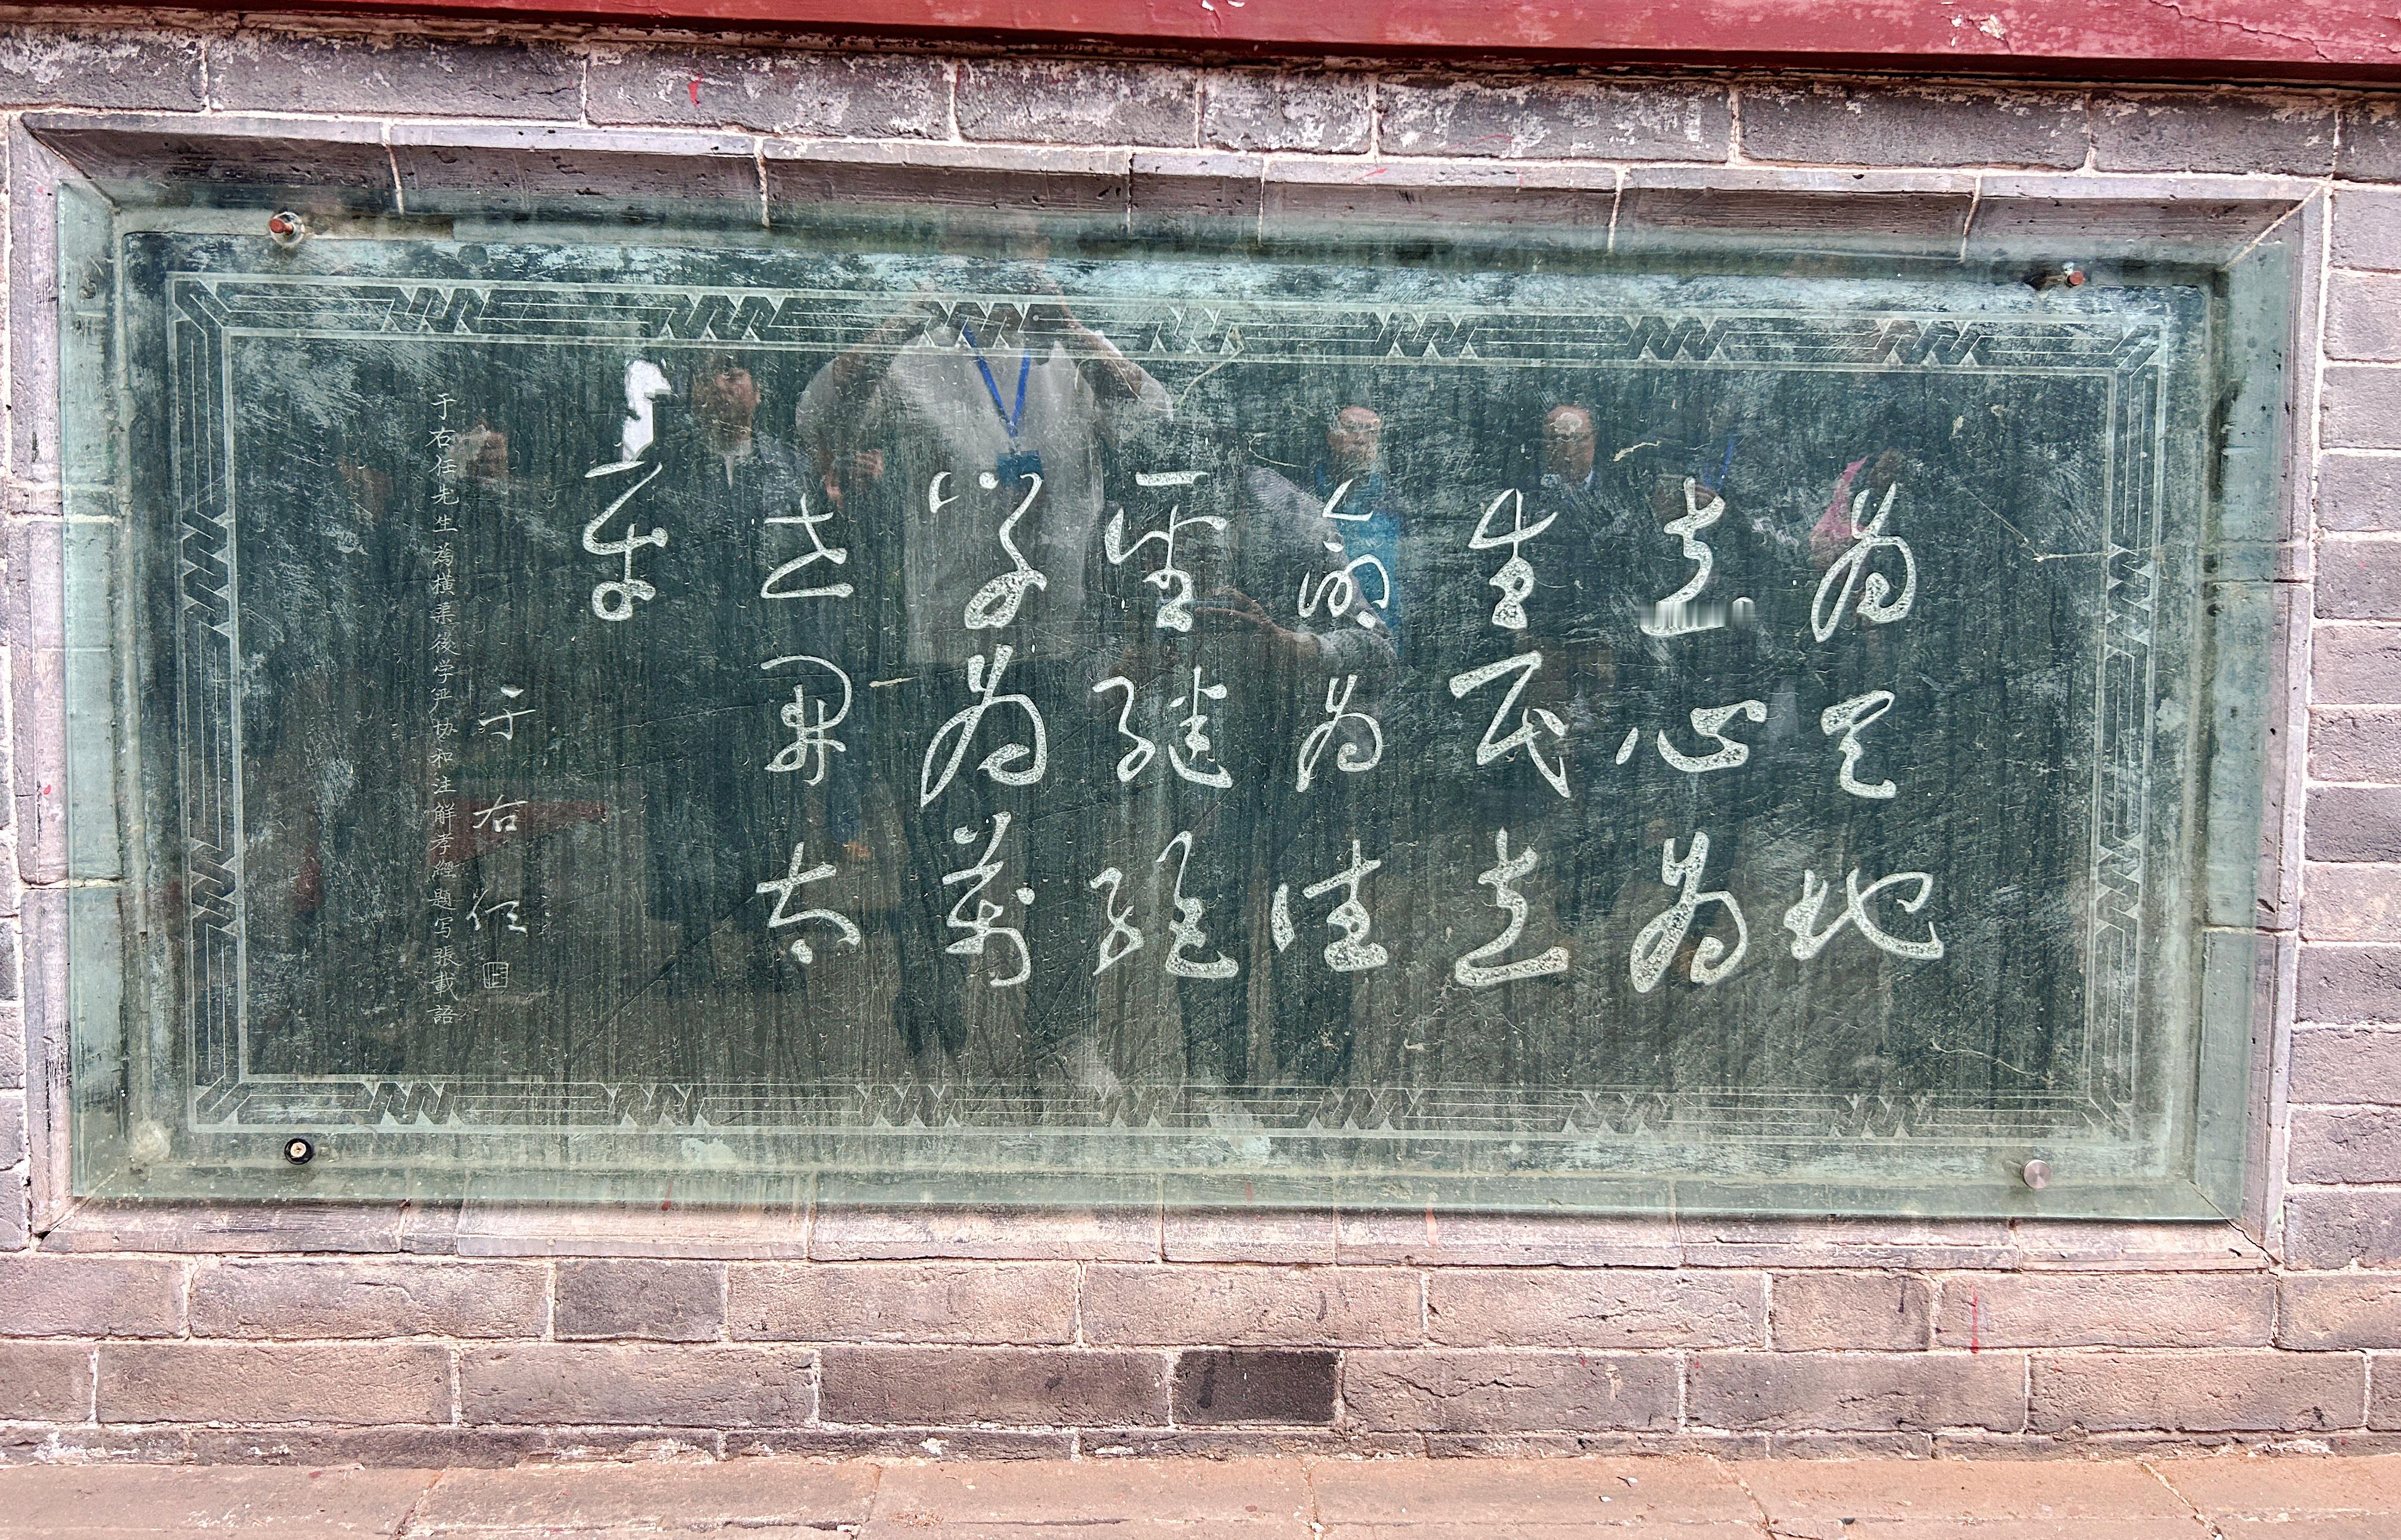 為天地
立心為
生民立
命為往
聖繼絕
學為萬
世開太
平
于右任
于右任先生為橫渠後学严协和注解孝經題写張載語